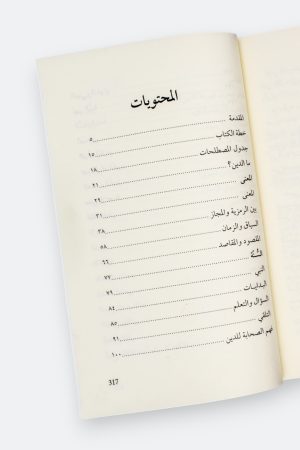 المحتويات
المقدمة ........ ٥
خطة الكتاب ........ ١٥
جدول المصطلحات ........ ١٨
ما الدين؟ ........ ٢١
المعنى ........ ٢٩
المعنى ........ ٣١
بين الرمزية والمجاز ........ ٣٨
السياق والزمان ........ ٥٨
المقصود والمقاصد ........ ٦٦
السُّنّة ........ ٧٧
النبي ........ ٧٩
البدايات ........ ٨٤
السؤال والتعلم ........ ٨٥
التلقي ........ ٩١
فهم الصحابة للدين ........ ١٠٠
317